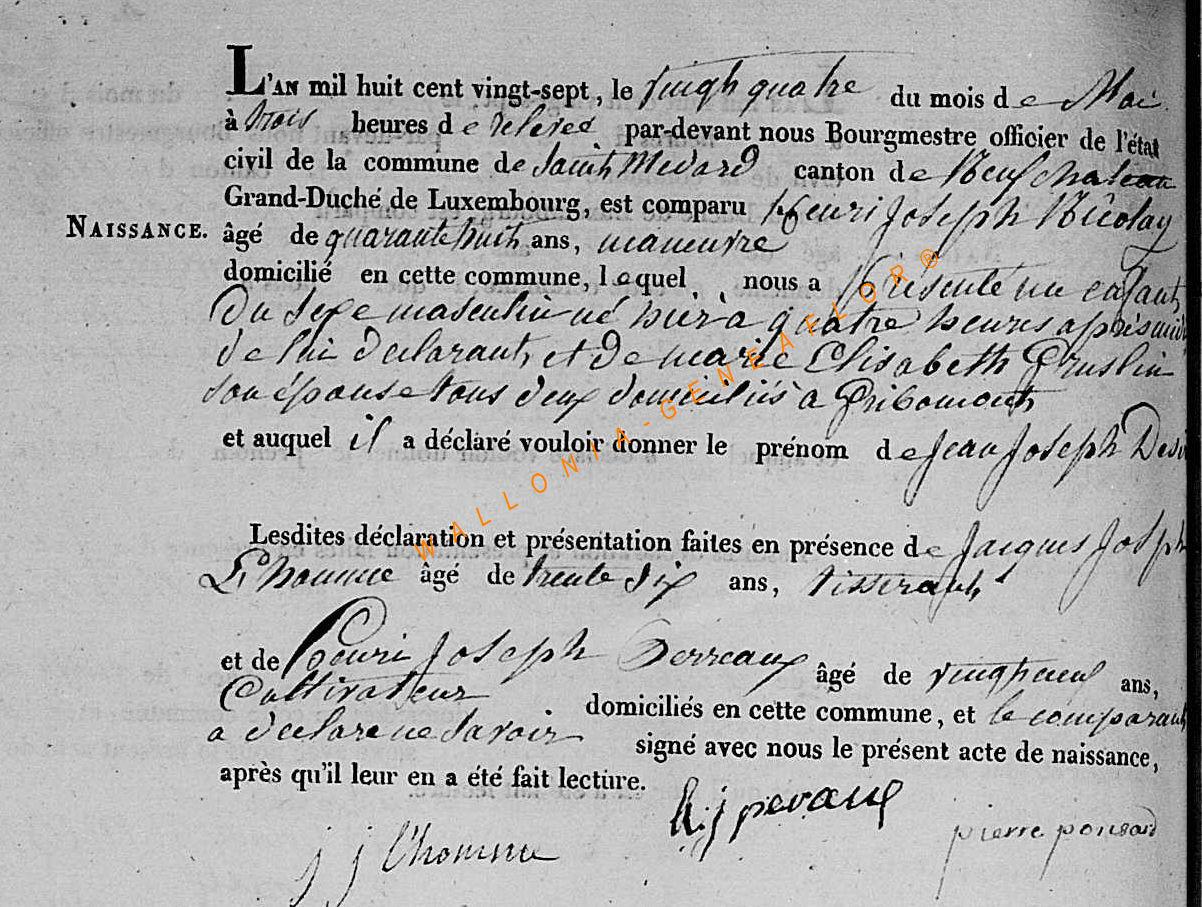 L'AN mil huit cent vingt-sept, le vingt quatre du mois de Mai
à trois heures de relevée par-devant nous Bourgmestre officier de l'état
civil de la commune de Saint Medard canton de Neufchateau
Grand-Duché de Luxembourg, est comparu henri joseph Nicolay
NAISSANCE. âgé de quarante huit ans, maneuvre
domicilié en cette commune, lequel nous a présenté un enfant
du sexe masculin né hier à quatre heures après midi
de lui declarant, et de marie Elisabeth
son épouse tous deux domiciliés à Gribomont
et auquel il a déclaré vouloir donner le prénom de jean joseph
Lesdites déclaration et présentation faites en présence de jacques joseph
L'homme âgé de trente six ans, tisserant
et de henri joseph âgé de vingt neuf ans,
Cultivateur domiciliés en cette commune, et le comparant
a declare ne savoir signé avec nous le présent acte de naissance,
après qu'il leur en a été fait lecture.
j j l'homme
pierre ponsard
WALLONIA-GENEAFLOR®